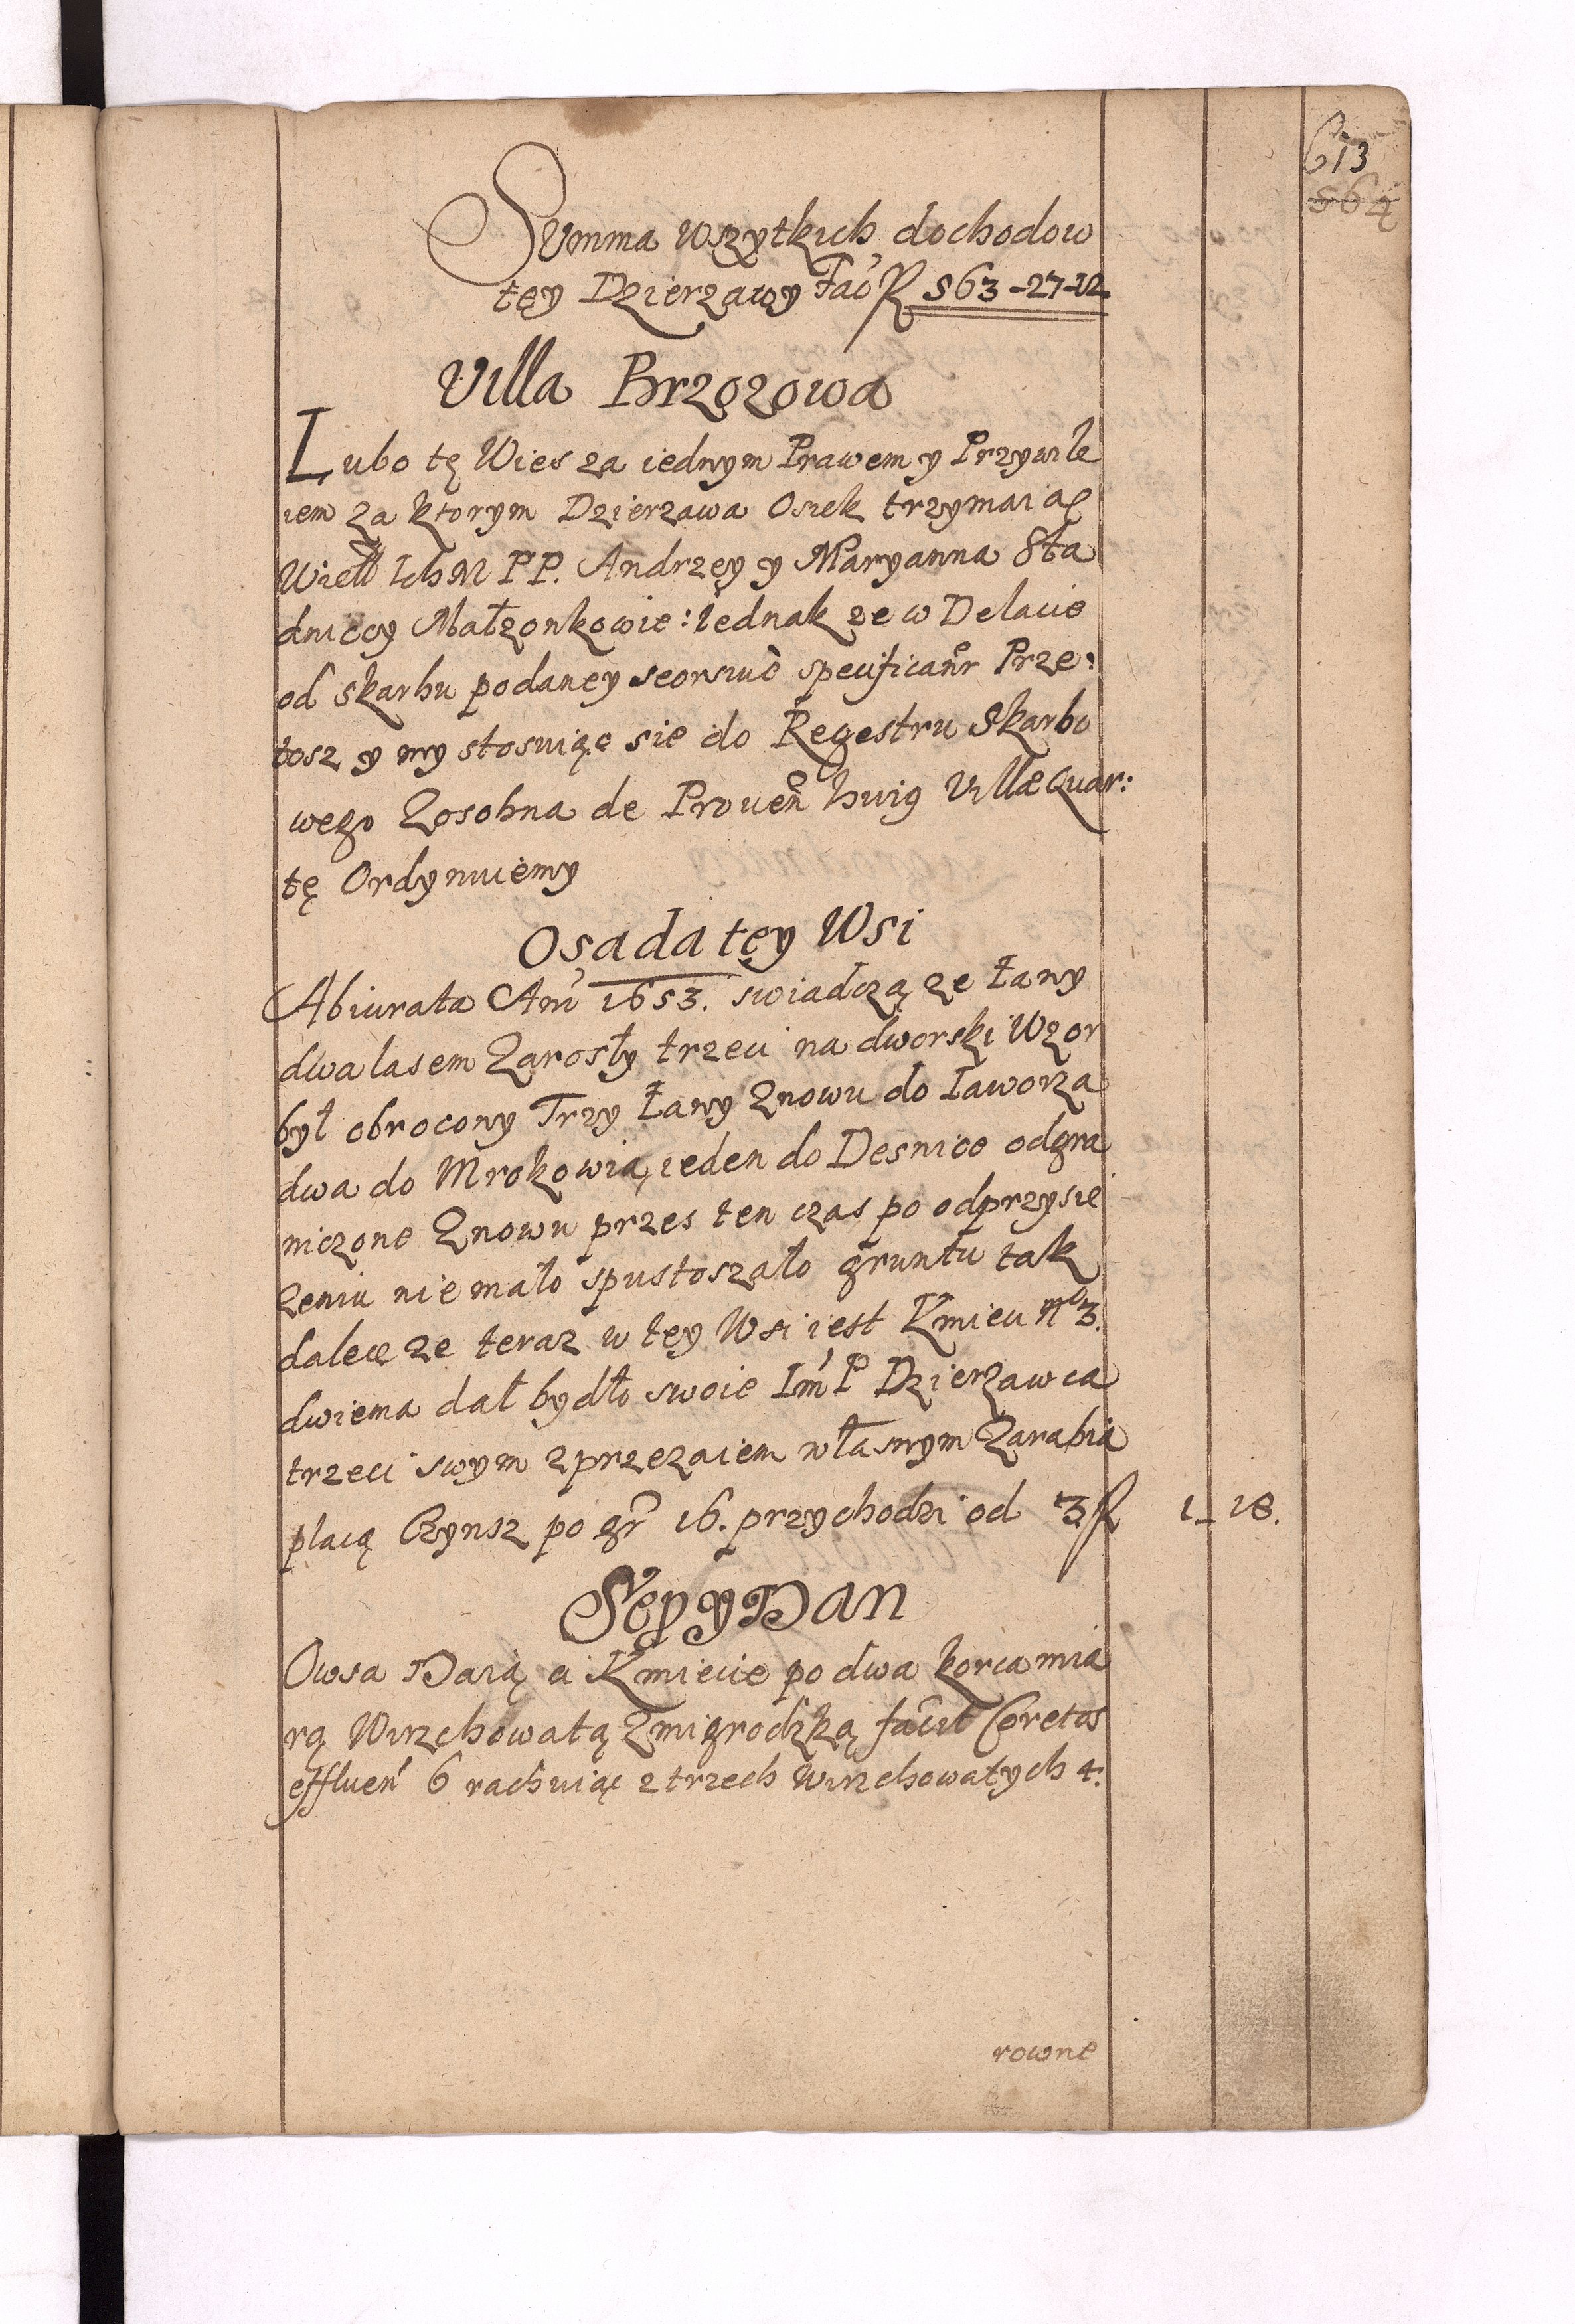 613
564
Summa wszytkich dochodow
tęy Dzierzawy Fac̃ f 563-27-12
Villa Brzozowa
Lubo tę Wies za iednym Prawem y Przywile
iem za ktorym Dzierzawa Osiek trzymaiąc
Wiell IchM PP. Andrzey y Maryanna Sta
dniccy Małzonkowie: iednak ze w Delacie
od skarbu podaney seorsivè specificant̃r Prze:
tosz y my stosuiąc sie do Regestru Skarbo
wego Zosobna de Proven̄ huiq Villæ Quar:
tę Ordynuiemy
Osada tęy Wsi
Abiurata Am̃ 1653. swiadczą ze Łany
dwa lasem Zarosły trzeci na dworski Wzor
był obrocony Trzy Łany Znowu do Iaworza
dwa do Mrokowia, ieden do Desnice odgra
niczone Znowu przes ten czas po odprzysię
zeniu nie mało spustoszało gruntu tak
dalece ze teraz w tęy Wsi iest Kmieci No 3.
dwiema dał bydło swoie Im̃ P Dzierzawca
trzeci swym zprzezaiem własnym Zarabia
płacą Czynsz po gr̃ 16. przychodzi od 3 f 1_18.
Sep y Dan
Owsa Daią ci Kmiecie po dwa korca mia
rą Wirzchowatą Zmigrodzką facit Coretos
effluen̄ 6 rachuiąc z trzech Wirzchowatych 4.
rowne